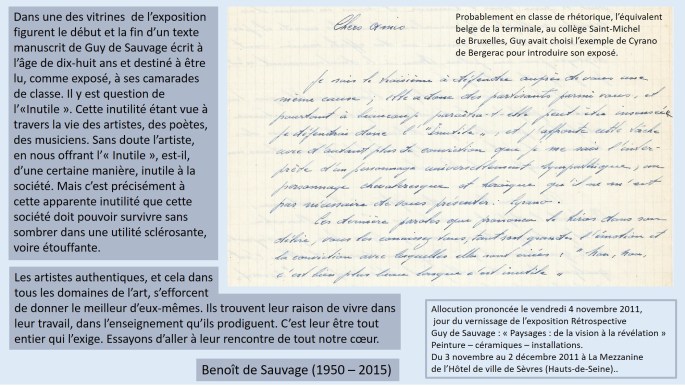 Dans une des vitrines de l'exposition
figurent le début et la fin d'un texte
manuscrit de Guy de Sauvage écrit à
l'âge de dix-huit ans et destiné à être
lu, comme exposé, à ses camarades
de classe. Il y est question de
l'«Inutile ». Cette inutilité étant vue à
travers la vie des artistes, des poètes,
des musiciens. Sans doute l'artiste,
en nous offrant l'« Inutile », est-il,
d'une certaine manière, inutile à la
société. Mais c'est précisément à
cette apparente inutilité que cette
société doit pouvoir survivre sans
sombrer dans une utilité sclérosante,
voire étouffante.
Probablement en classe de rhétorique, l'équivalent
belge de la terminale, au collège Saint-Michel
de Bruxelles, Guy avait choisi l'exemple de Cyrano
de Bergerac pour introduire son exposé.
Chers Amis
Je suis le vingtième à défendre auprès de vous une
même cause ; elle a donc des partisans parmi vous, et
pourtant à beaucoup paraîtra-t-elle peut-être insensée
Je défendrai donc l'"Inutile", et j'affronte cette tâche
avec d'autant plus de conviction que je me suis l'inter-
prète d'un personnage universellement sympathique, un
personnage chevaleresque et héroïque qu'il ne m'est
pas nécessaire de vous présenter : Cyrano.
Ces dernières paroles que prononce le héros dans son
délire, vous les connaissez tous, tout
la conviction avec lesquelles elles sont : "Non, non,
c'est bien plus beau lorsque c'est inutile"
Les artistes authentiques, et cela dans
tous les domaines de l'art, s'efforcent
de donner le meilleur d'eux-mêmes. Ils trouvent leur raison de vivre dans
leur travail, dans l'enseignement qu'ils prodiguent. C'est leur être tout
entier qui l'exige. Essayons d'aller à leur rencontre de tout notre cœur.
Benoît de Sauvage (1950 – 2015)
Allocution prononcée le vendredi 4 novembre 2011,
jour du vernissage de l'exposition Rétrospective
Guy de Sauvage : « Paysages : de la vision à la révélation »
Peinture – céramiques – installations.
Du 3 novembre au 2 décembre 2011 à La Mezzanine
de l'Hôtel de ville de Sèvres (Hauts-de-Seine)..